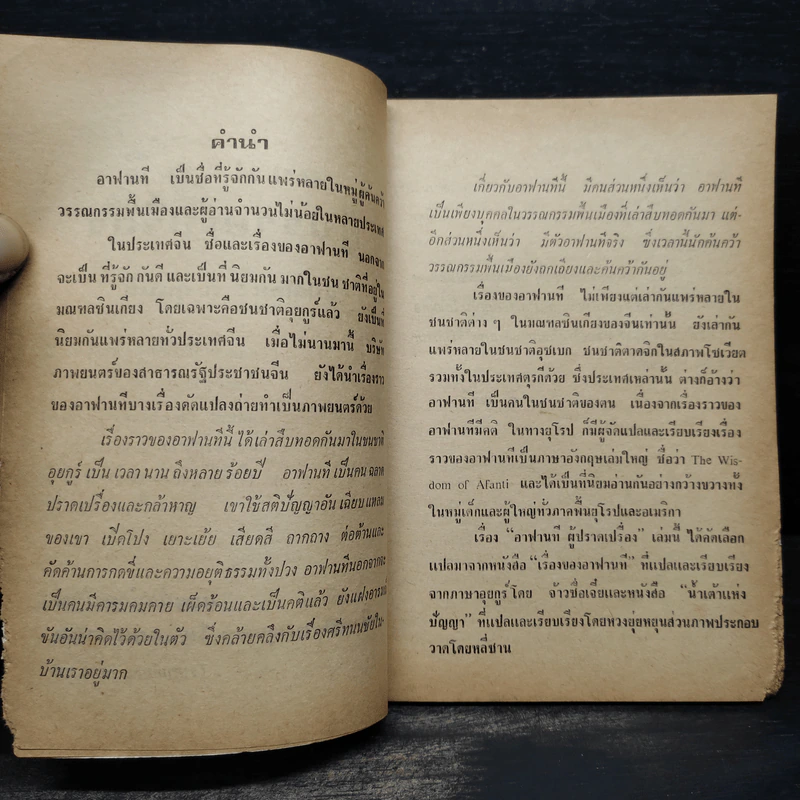 คำนำ
อาฟานที เป็นชื่อที่รู้จักกันแพร่หลายในหมู่ผู้ค้นคว้า
วรรณกรรมพื้นเมืองและผู้อ่านจำนวนไม่น้อยในหลายประเทศ
ในประเทศจีน ชื่อและเรื่องของอาฟานที นอกจาก
จะเป็น ที่รู้จัก กันดี และเป็นที่ นิยมกัน มากในชน ชาติที่อยู่ใน
มณฑลซินเกียง โดยเฉพาะคือชนชาติอุยกูร์แล้ว ยังเป็นที่
นิยมกันแพร่หลายทั่วประเทศจีน เมื่อไม่นานมานี้ บริษัท
ภาพยนตร์ของสาธารณรัฐประชาชนจีน ยังได้นำเรื่องราว
ของอาฟานทีบางเรื่องดัดแปลงถ่ายทำเป็นภาพยนตร์ด้วย
เรื่องราวของอาฟานทีนี้ ได้เล่าสืบทอดกันมาในชนชาติ
อุยกูร์ เป็น เวลา นาน ถึงหลาย ร้อยปี อาฟานที เป็นคน ฉลาด
ปราดเปรื่องและกล้าหาญ เขาใช้สติปัญญาอัน เฉียบ แหลม
ของเขา เปิดโปง เยาะเย้ย เสียดสี ถากถาง ต่อต้านและ
คัดค้านการกดขี่และความอยุติธรรมทั้งปวง อาฟานทีนอกจากจะ
เป็นคนมีคารมคมคาย เผ็ดร้อนและเป็นคติแล้ว ยังแฝงอารมณ์
ขันอันน่าคิดไว้ด้วยในตัว ซึ่งคล้ายคลึงกับเรื่องศรีทนนชัยใน-
บ้านเราอยู่มาก
เกี่ยวกับอาฟานทีนี้ มีคนส่วนหนึ่งเห็นว่า อาฟานที
เป็นเพียงบุคคลในวรรณกรรมพื้นเมืองที่เล่าสืบทอดกันมา แต่-
อีกส่วนหนึ่งเห็นว่า มีตัวอาฟานทีจริง ซึ่งเวลานี้นักค้นคว้า
วรรณกรรมพื้นเมืองยังถกเถียงและค้นคว้ากันอยู่
เรื่องของอาฟานที ไม่เพียงแต่เล่ากันแพร่หลายใน
ชนชาติต่าง ๆ ในมณฑลซินเกียงของจีนเท่านั้น ยังเล่ากัน
แพร่หลายในชนชาติอุซเบก ชนชาติตาดจิกในสภาพโซเวียต
รวมทั้งในประเทศตุรกีด้วย ซึ่งประเทศเหล่านั้น ต่างก็อ้างว่า
อาฟานที เป็นคนในชนชาติของตน เนื่องจากเรื่องราวของ
อาฟานทีมีคติ ในทางยุโรป ก็มีผู้จัดแปลและเรียบเรียงเรื่อง
ราวของอาฟานทีเป็นภาษาอังกฤษเล่มใหญ่ ชื่อว่า The Wis-
dom of Afanti และได้เป็นที่นิยมอ่านกันอย่างกว้างขวางทั้ง
ในหมู่เด็กและผู้ใหญ่ทั่วภาคพื้นยุโรปและอเมริกา
เรื่อง “อาฟานที ผู้ปราดเปรื่อง” เล่มนี้ ได้คัดเลือก
แปลมาจากหนังสือ “เรื่องของอาฟานที” ที่แปลและเรียบเรียง
จากภาษาอุยกูร์ โดย จ้าวซื่อเจี๋ยและหนังสือ “น้ำเต้าแห่ง
ปัญญา” ที่แปลและเรียบเรียงโดยหวงยุ่ยหยุนส่วนภาพประกอบ
วาดโดยหลี่ซาน